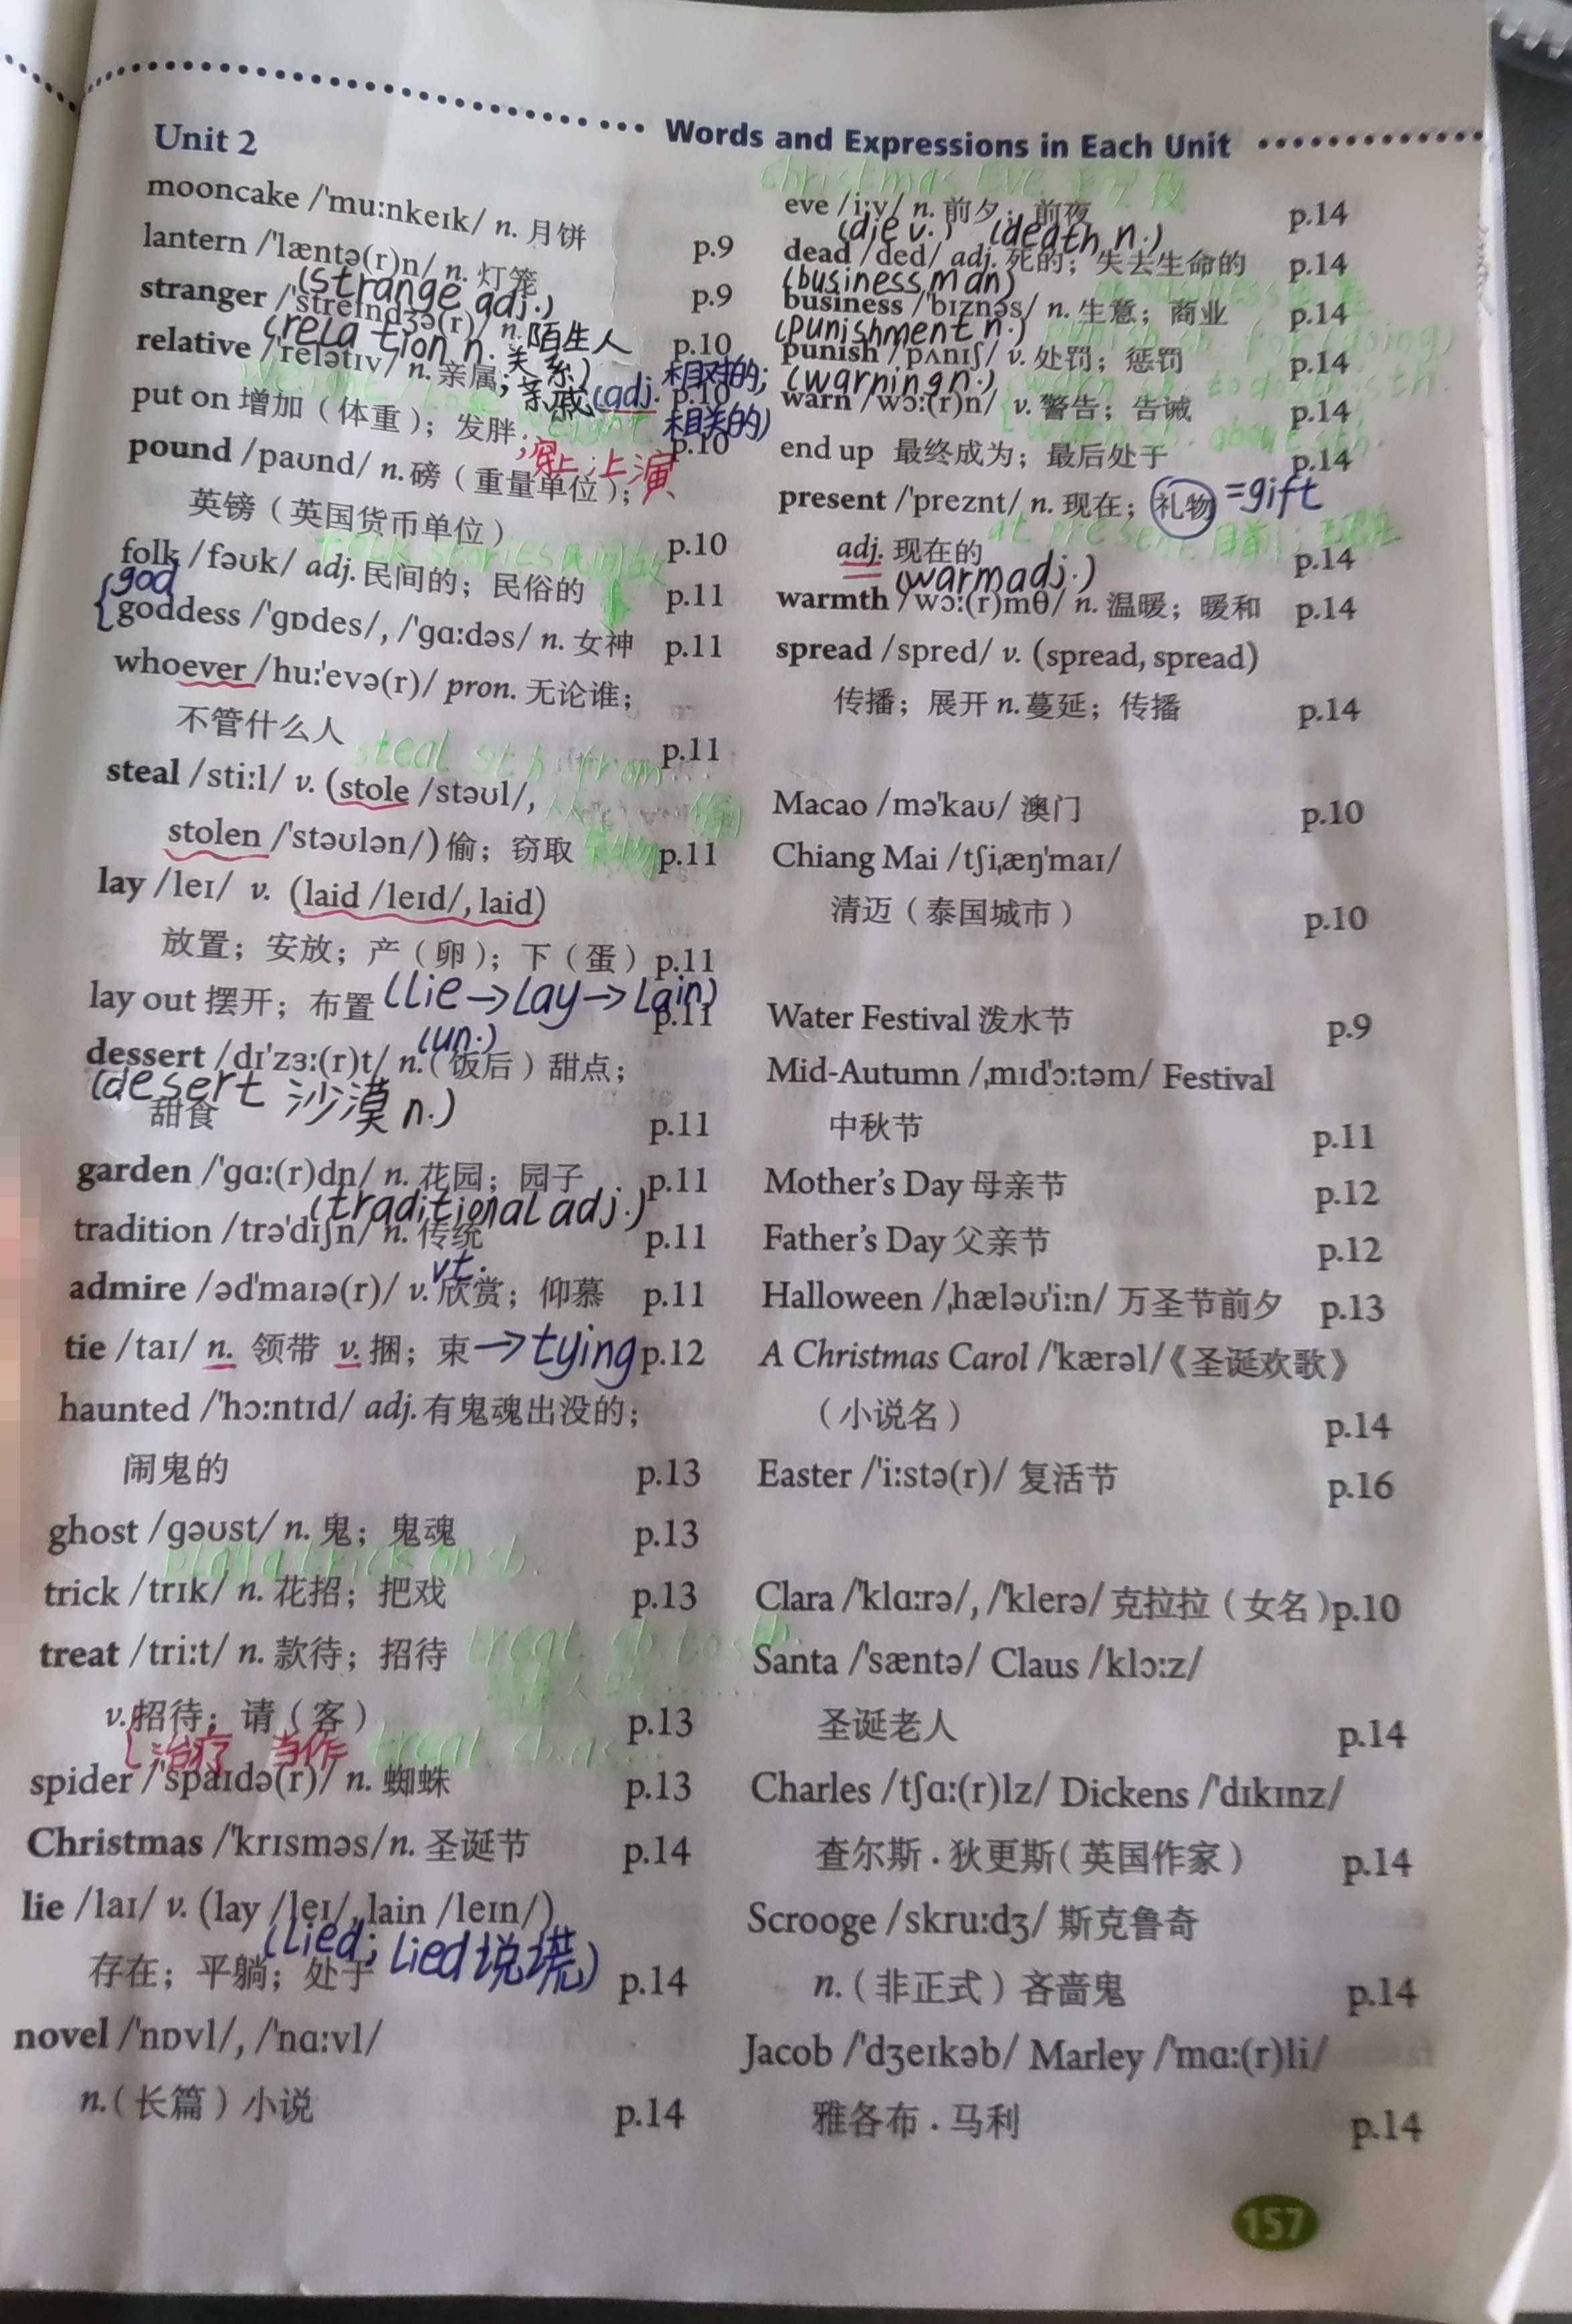 Words and Expressions in Each Unit
Unit 2
mooncake /ˈmuːnkeɪk/ n. 月饼 p.9
lantern /ˈlæntə(r)n/ n. 灯笼 p.9
(strange adj.)
stranger /ˈstreɪndʒə(r)/ n. 陌生人 p.10
(relation n. 关系)
relative /ˈrelətɪv/ n. 亲属；亲戚 (adj. 相对的; 相关的) p.10
put on 增加（体重）；发胖 ; 穿上; 上演 p.10
pound /paʊnd/ n. 磅（重量单位）；
英镑（英国货币单位） p.10
folk stories 民间故
folk /fəʊk/ adj. 民间的；民俗的 p.11
god
goddess /ˈɡɒdes/, /ˈɡɑːdəs/ n. 女神 p.11
whoever /huːˈevə(r)/ pron. 无论谁；
不管什么人 p.11
steal sth. from...
steal /stiːl/ v. (stole /stəʊl/,
stolen /ˈstəʊlən/) 偷；窃取 p.11
lay /leɪ/ v. (laid /leɪd/, laid)
放置；安放；产（卵）；下（蛋） p.11
lay out 摆开；布置 (lie→lay→lain) p.11
(un.)
dessert /dɪˈzɜː(r)t/ n.（饭后）甜点；
(desert 沙漠 n.)
甜食 p.11
garden /ˈɡɑː(r)dn/ n. 花园；园子 p.11
(traditional adj.)
tradition /trəˈdɪʃn/ n. 传统 p.11
vt.
admire /ədˈmaɪə(r)/ v. 欣赏；仰慕 p.11
tie /taɪ/ n. 领带 v. 捆；束 →tying p.12
haunted /ˈhɔːntɪd/ adj. 有鬼魂出没的；
闹鬼的 p.13
ghost /ɡəʊst/ n. 鬼；鬼魂 p.13
play a trick on sb.
trick /trɪk/ n. 花招；把戏 p.13
treat /triːt/ n. 款待；招待 treat sb. to sth.
v. 招待；请（客） p.13
治疗 当作 treat sb. as...
spider /ˈspaɪdə(r)/ n. 蜘蛛 p.13
Christmas /ˈkrɪsməs/ n. 圣诞节 p.14
lie /laɪ/ v. (lay /leɪ/, lain /leɪn/)
(lied; lied 说谎)
存在；平躺；处于 p.14
novel /ˈnɒvl/, /ˈnɑːvl/
n.（长篇）小说 p.14
Christmas Eve
eve /iːv/ n. 前夕；前夜 p.14
(die v.) (death n.)
dead /ded/ adj. 死的；失去生命的 p.14
(businessman)
business /ˈbɪznəs/ n. 生意；商业 p.14
(punishment n.)
punish /ˈpʌnɪʃ/ v. 处罚；惩罚 p.14
(warning n.)
warn /wɔː(r)n/ v. 警告；告诫 p.14
warn sb. about sth.
end up 最终成为；最后处于 p.14
present /ˈpreznt/ n. 现在；礼物 =gift
at present 目前;现在
adj. 现在的 p.14
(warm adj.)
warmth /wɔː(r)mθ/ n. 温暖；暖和 p.14
spread /spred/ v. (spread, spread)
传播；展开 n. 蔓延；传播 p.14
Macao /məˈkaʊ/ 澳门 p.10
Chiang Mai /tʃiˌæŋˈmaɪ/
清迈（泰国城市） p.10
Water Festival 泼水节 p.9
Mid-Autumn /ˌmɪdˈɔːtəm/ Festival
中秋节 p.11
Mother's Day 母亲节 p.12
Father's Day 父亲节 p.12
Halloween /ˌhæləʊˈiːn/ 万圣节前夕 p.13
A Christmas Carol /ˈkærəl/《圣诞欢歌》
（小说名） p.14
Easter /ˈiːstə(r)/ 复活节 p.16
Clara /ˈklɑːrə/, /ˈklerə/ 克拉拉（女名） p.10
Santa /ˈsæntə/ Claus /klɔːz/
圣诞老人 p.14
Charles /tʃɑː(r)lz/ Dickens /ˈdɪkɪnz/
查尔斯·狄更斯（英国作家） p.14
Scrooge /skruːdʒ/ 斯克鲁奇
n.（非正式）吝啬鬼 p.14
Jacob /ˈdʒeɪkəb/ Marley /ˈmɑː(r)li/
雅各布·马利 p.14
157